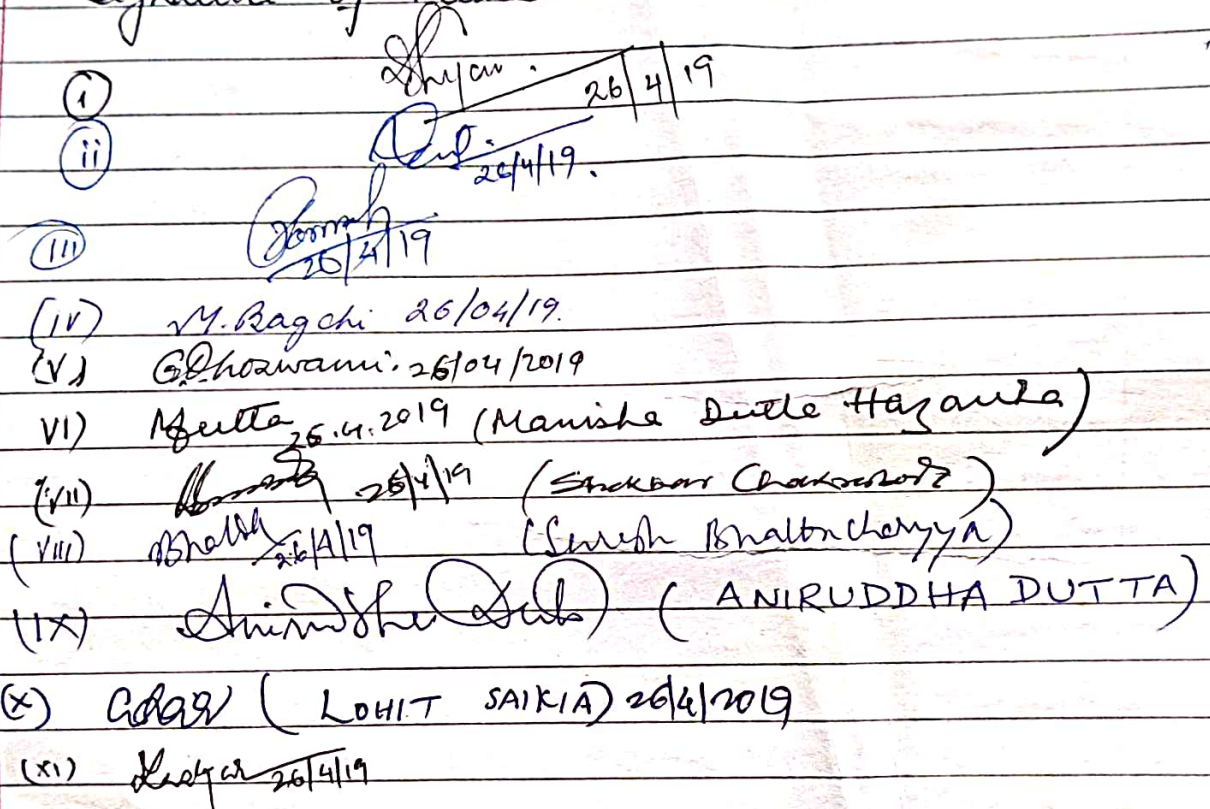 Signature of
(i) Shyam. 26/4/19
(ii) 26/4/19.
(iii) 26/4/19
(iv) M. Bagchi 26/04/19.
(v) G. Ghoswami. 26/04/2019
VI) MDutta 26.4.2019 (Manisha Dutta Hazarika)
(VII) 26/4/19 (Shekhar Chakraborty)
(VIII) Bhatta 26/4/19 (Suresh Bhattacharyya)
(IX) Aniruddha Dutta (ANIRUDDHA DUTTA)
(X) (LOHIT SAIKIA) 26/4/2019
(XI) 26/4/19